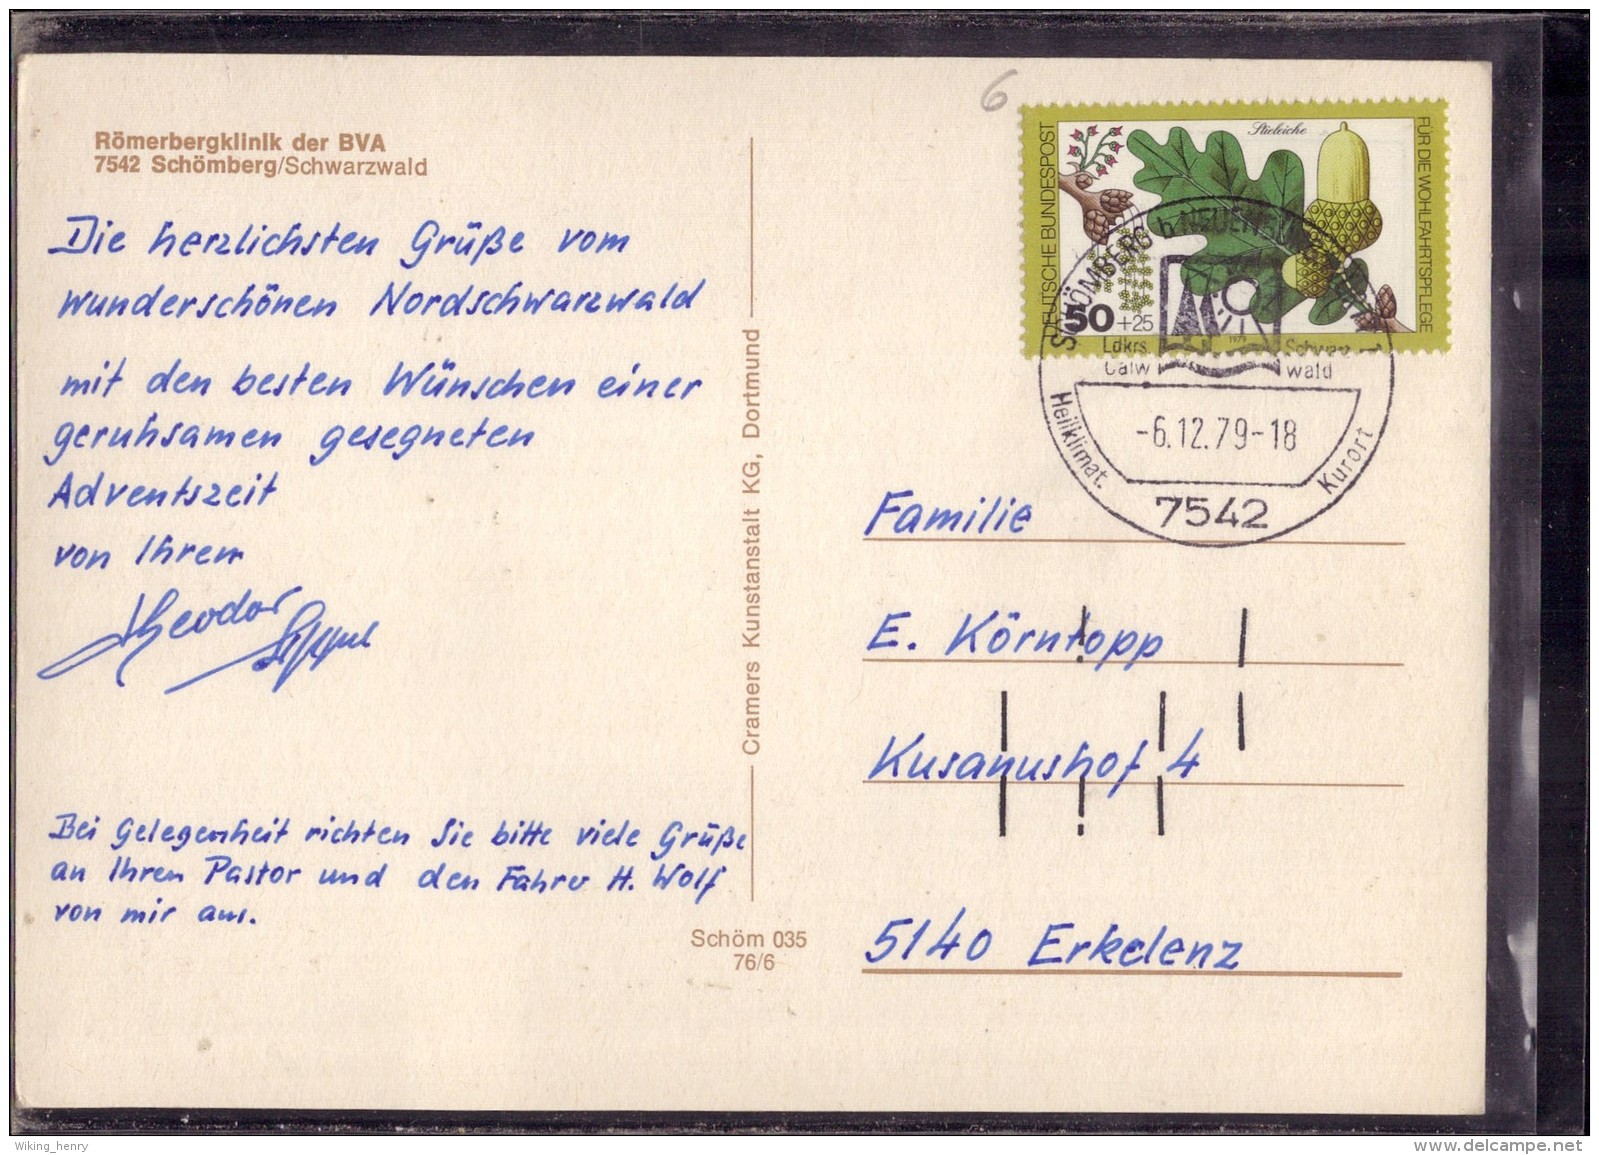 Römerbergklinik der BVA
7542 Schömberg/Schwarzwald
Die herzlichsten Grüße vom
wunderschönen Nordschwarzwald
mit den besten Wünschen einer
geruhsamen gesegneten
Adventszeit
von Ihrem
Theodor
Bei Gelegenheit richten Sie bitte viele Grüße
an Ihren Pastor und den Fahrer H. Wolf
von mir aus.
Cramers Kunstanstalt KG, Dortmund
Schöm 035
76/6
6
DEUTSCHE BUNDESPOST
Stieleiche
FÜR DIE WOHLFAHRTSPFLEGE
50 +25
1979
SCHÖMBERG b NEUENBÜRG
Ldkrs. Schwarz
Calw wald
-6.12.79-18
Heilklimat. Kurort
7542
Familie
E. Körntopp
Kusanushof 4
5140 Erkelenz
Wiking_henry
www.delcampe.net